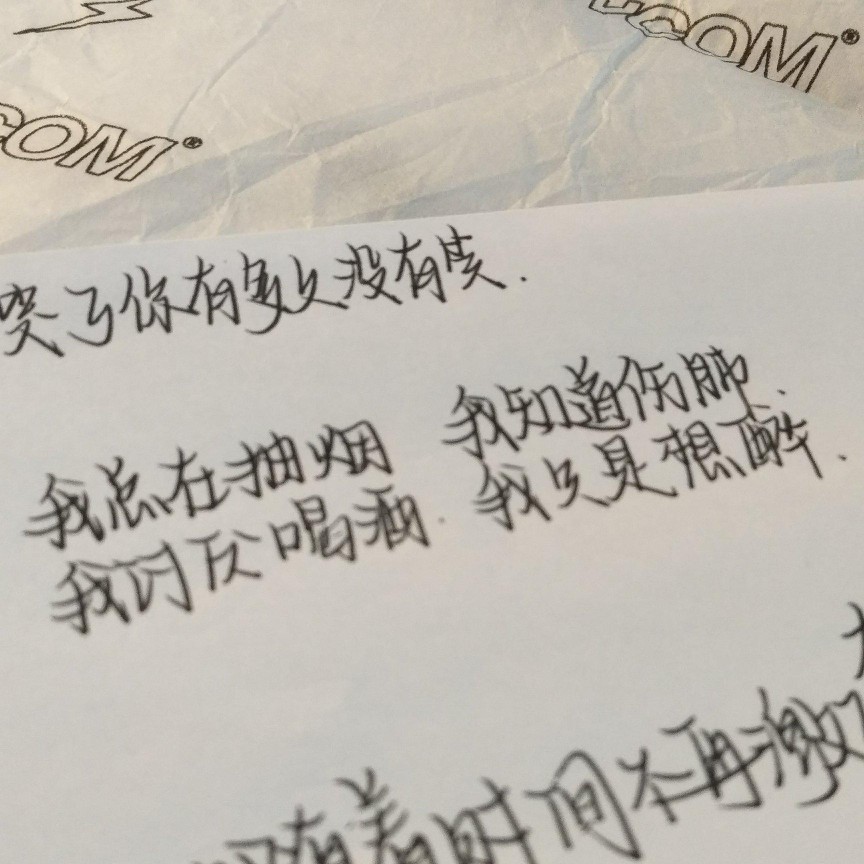 COM®
COM®
哭了你有多久没有哭.
我总在抽烟 我知道伤肺.
我讨厌喝酒. 我只是想醉.
有着时间不再